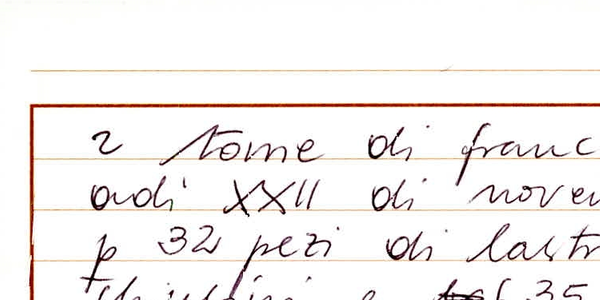 2 tome di franc
adi XXII di nove
p 32 pezi di lastr
35